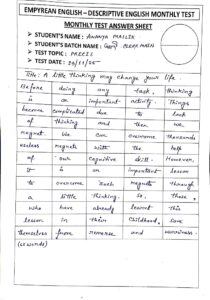 EMPYREAN ENGLISH – DESCRIPTIVE ENGLISH MONTHLY TEST
MONTHLY TEST ANSWER SHEET
➤ STUDENT'S NAME : Ananya MALLIK
➤ STUDENT'S BATCH NAME :
➤ TEST TOPIC : PRECIS
➤ TEST DATE :
Title: A little thinking may change your life.
Before doing any task, thinking
is an important activity. Things
become complicated due to lack
of thinking and then we
regret. We can overcome thousands
useless regrets with the help
of our cognitive skill. However,
it is an important lesson
to overcome such regrets through
a little thinking. So, those
who have already learnt this
lesson in their childhood, save
themselves from remorse and worriness.
words)